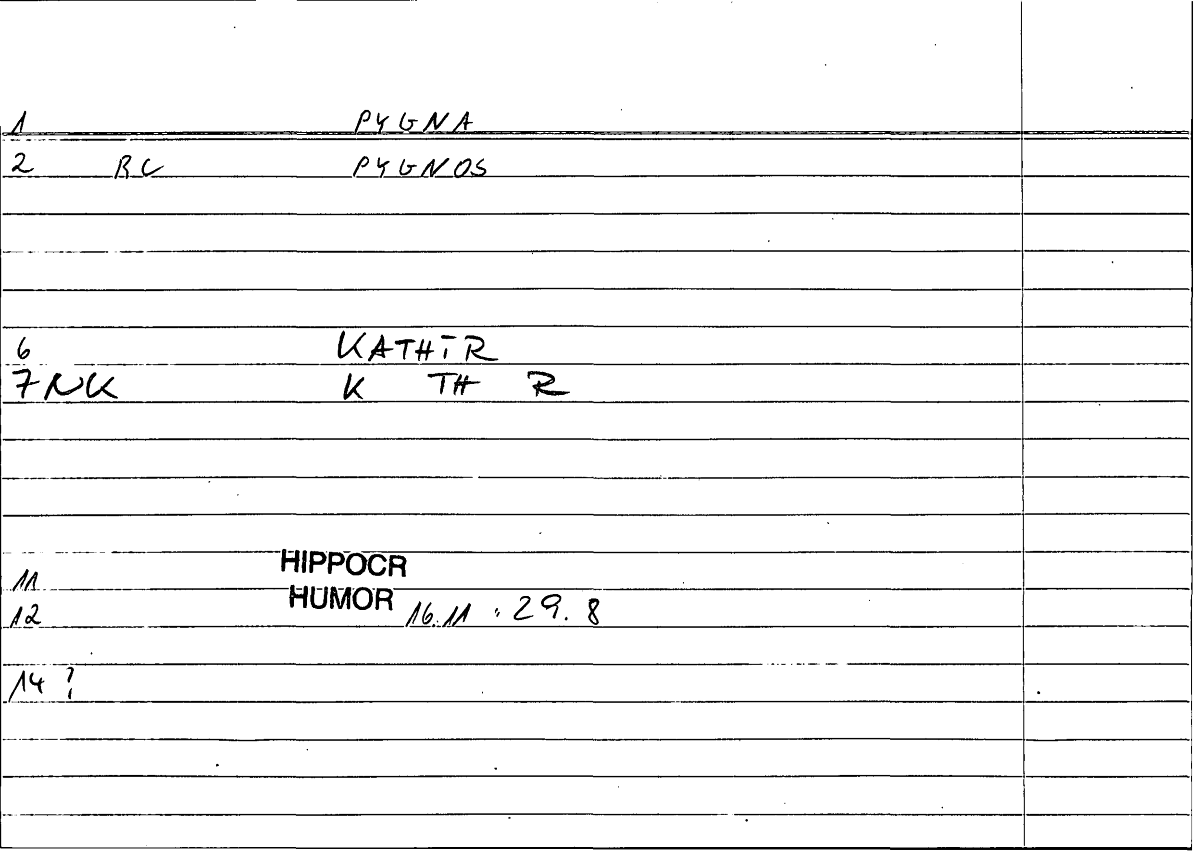 1 PYGNA
2 RC PYGNOS
6 KATHIR
7 NK K TH R
HIPPOCR
11
HUMOR
12 16.11 29.8
14 ?